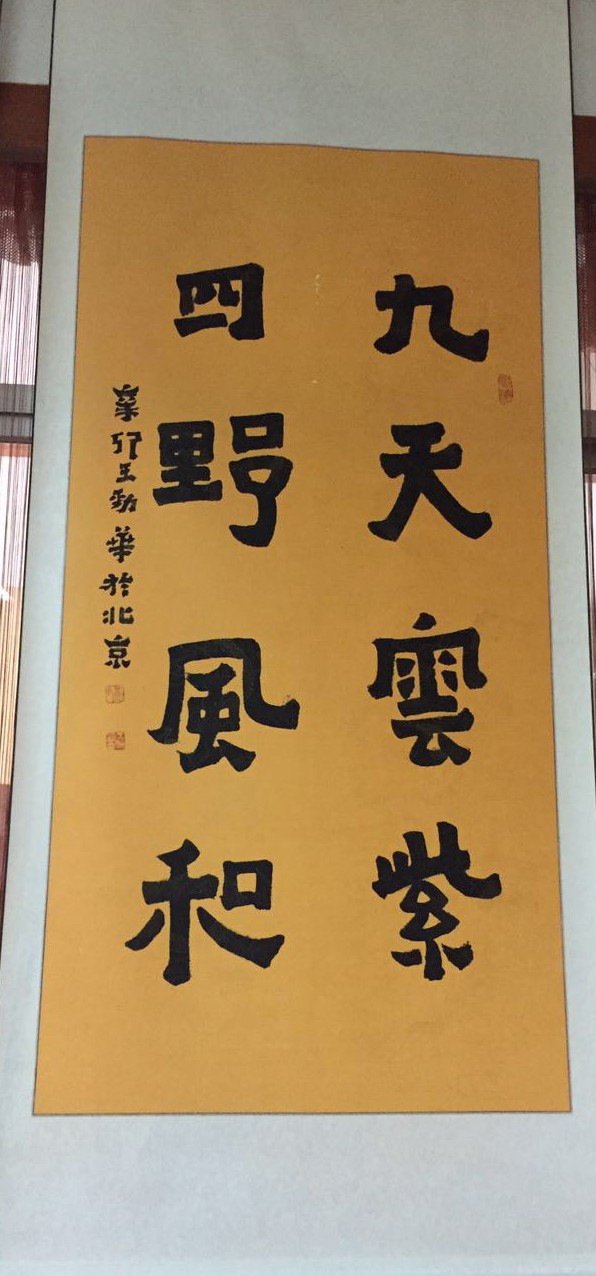 九天雲紫
四野風和
辛卯王勁華於北京